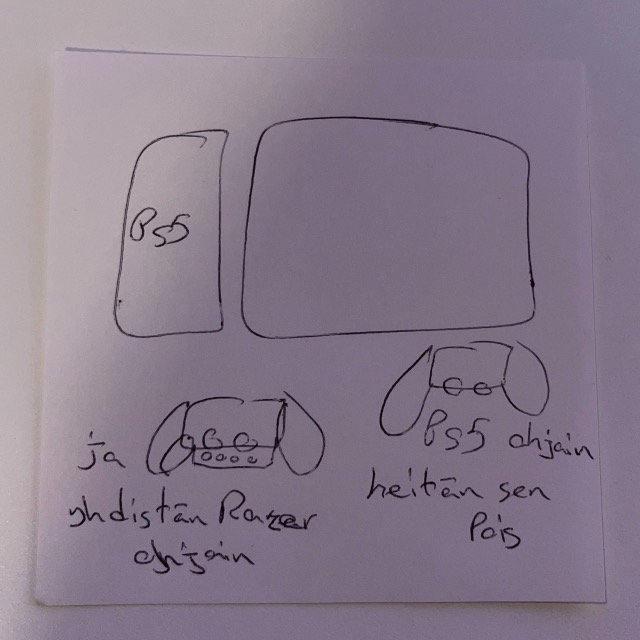 PS5
PS5 ohjain
heitän sen
Pois
ja
yhdistän Razer
ohjain